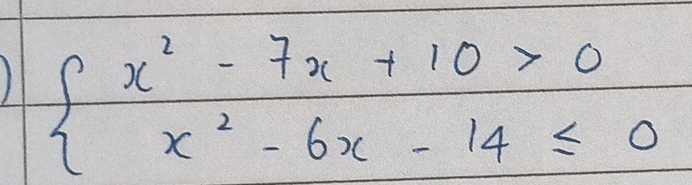 ) { x² - 7x + 10 > 0
x² - 6x - 14 ≤ 0